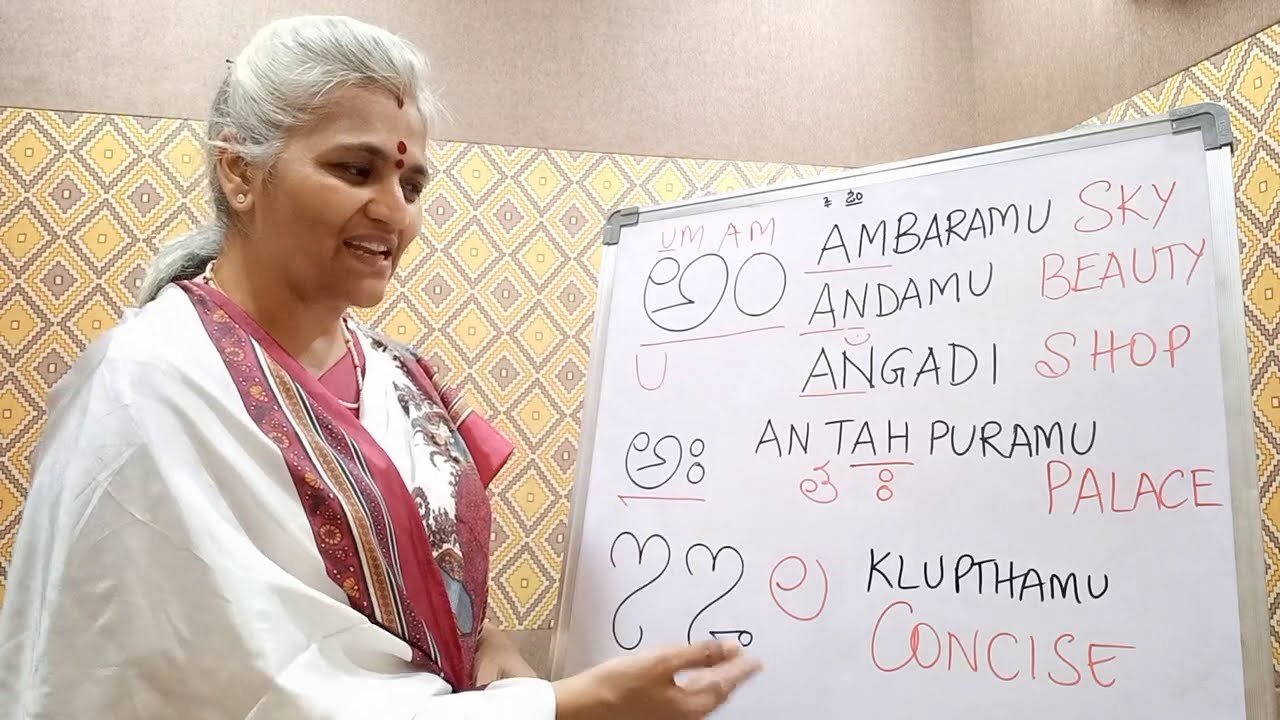 UM AM
అం AMBARAMU SKY
ANDAMU BEAUTY
U ANGADI SHOP
అః AN TAH PURAMU
త ః PALACE
ఌ ౡ ల KLUPTHAMU
CONCISE